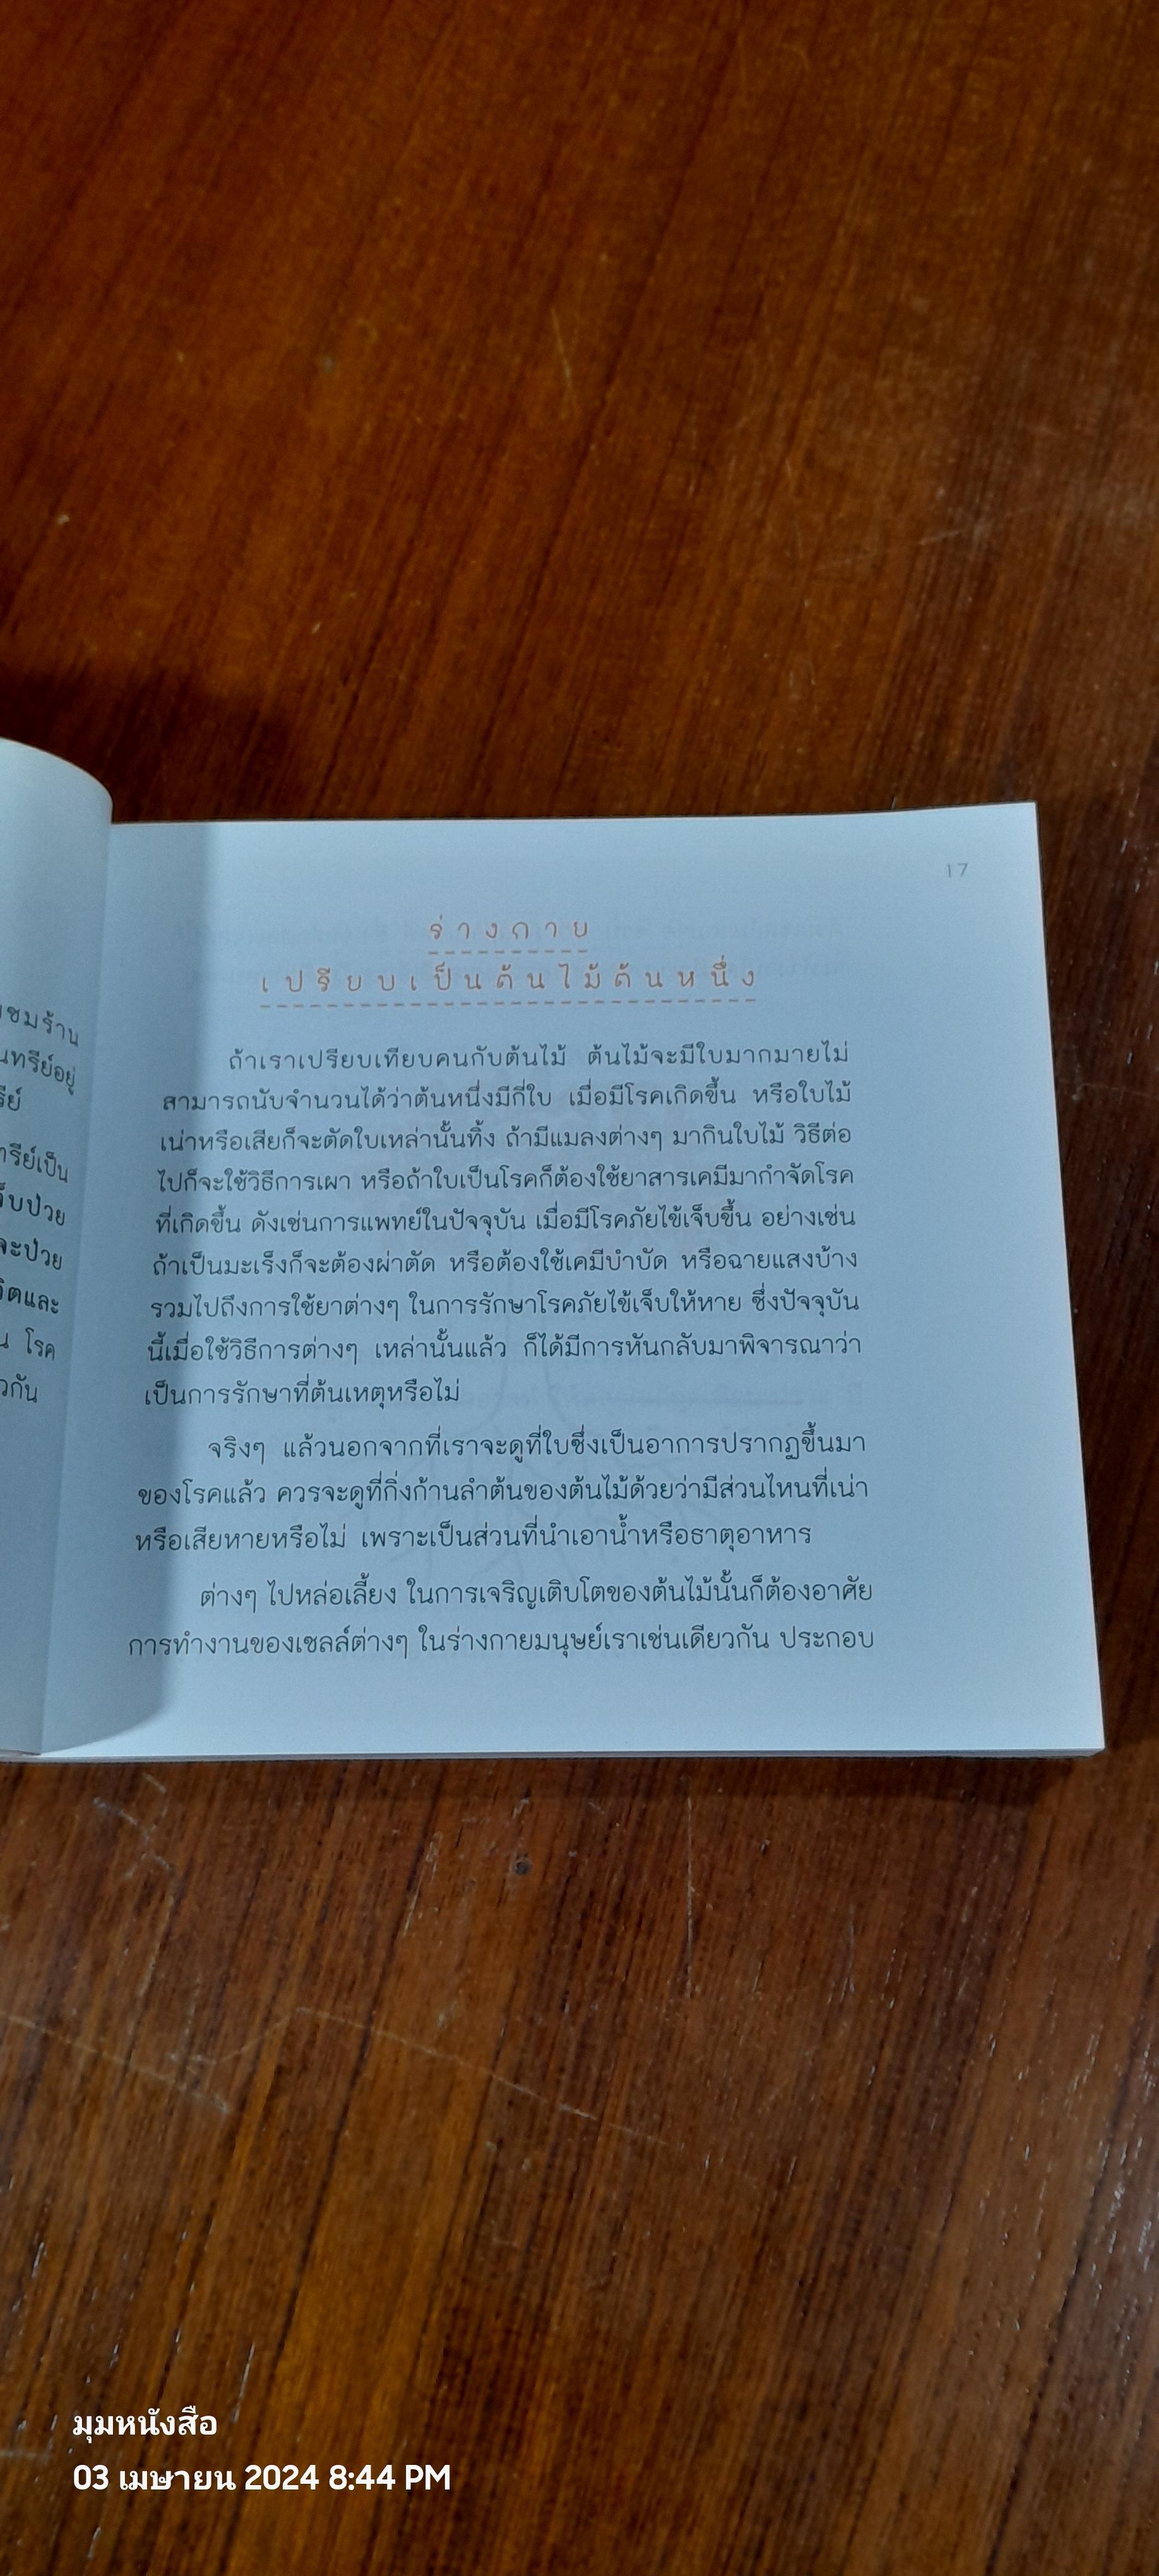 ชมร้าน
นทรีย์อยู่
รีย์
ทรีย์เป็น
จ็บป่วย
จะป่วย
วิตและ
น โรค
วกัน
17
ร่างกาย
เปรียบเป็นต้นไม้ต้นหนึ่ง
ถ้าเราเปรียบเทียบคนกับต้นไม้ ต้นไม้จะมีใบมากมายไม่
สามารถนับจำนวนได้ว่าต้นหนึ่งมีกี่ใบ เมื่อมีโรคเกิดขึ้น หรือใบไม้
เน่าหรือเสียก็จะตัดใบเหล่านั้นทิ้ง ถ้ามีแมลงต่างๆ มากินใบไม้ วิธีต่อ
ไปก็จะใช้วิธีการเผา หรือถ้าใบเป็นโรคก็ต้องใช้ยาสารเคมีมากำจัดโรค
ที่เกิดขึ้น ดังเช่นการแพทย์ในปัจจุบัน เมื่อมีโรคภัยไข้เจ็บขึ้น อย่างเช่น
ถ้าเป็นมะเร็งก็จะต้องผ่าตัด หรือต้องใช้เคมีบำบัด หรือฉายแสงบ้าง
รวมไปถึงการใช้ยาต่างๆ ในการรักษาโรคภัยไข้เจ็บให้หาย ซึ่งปัจจุบัน
นี้เมื่อใช้วิธีการต่างๆ เหล่านั้นแล้ว ก็ได้มีการหันกลับมาพิจารณาว่า
เป็นการรักษาที่ต้นเหตุหรือไม่
จริงๆ แล้วนอกจากที่เราจะดูที่ใบซึ่งเป็นอาการปรากฏขึ้นมา
ของโรคแล้ว ควรจะดูที่กิ่งก้านลำต้นของต้นไม้ด้วยว่ามีส่วนไหนที่เน่า
หรือเสียหายหรือไม่ เพราะเป็นส่วนที่นำเอาน้ำหรือธาตุอาหาร
ต่างๆ ไปหล่อเลี้ยง ในการเจริญเติบโตของต้นไม้นั้นก็ต้องอาศัย
การทำงานของเซลล์ต่างๆ ในร่างกายมนุษย์เราเช่นเดียวกัน ประกอบ
มุมหนังสือ
03 เมษายน 2024 8:44 PM